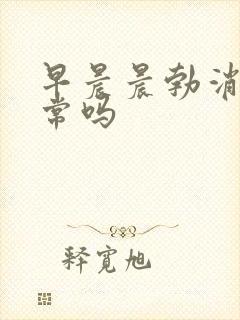 早晨晨勃消
常吗
释宽旭